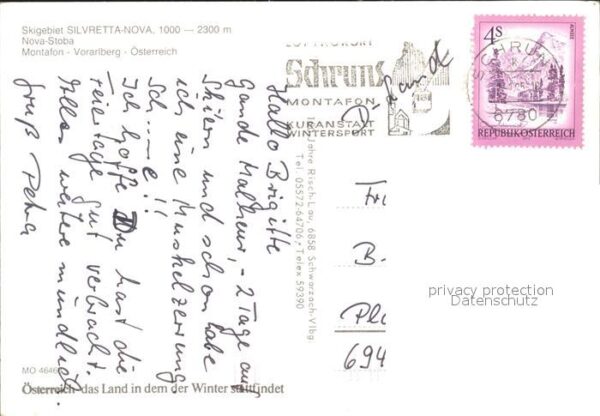 Skigebiet SILVRETTA-NOVA, 1000 — 2300 m
Nova-Stoba
Montafon - Vorarlberg - Österreich
Hallo Brigitte
Gande Malheur, - 2 Tage auf
Skiern und schon habe
ich eine Muskelzerrung
Sch....e !!
Ich hoffe Du hast die
Feiertage gut verbracht.
Alles weitere mündlich.
Gruß Petra
MO 4646
Österreich - das Land in dem der Winter stattfindet
Jahre Risch-Lau, 6858 Schwarzach-Vlbg
Tel. 05572-64706, Telex 59390
LUFTKURORT
Schruns
MONTAFON
KURANSTALT
WINTERSPORT
SCHRUNS
6780
4 S
REPUBLIK ÖSTERREICH
Fr
B.
Pla
694
privacy protection
Datenschutz